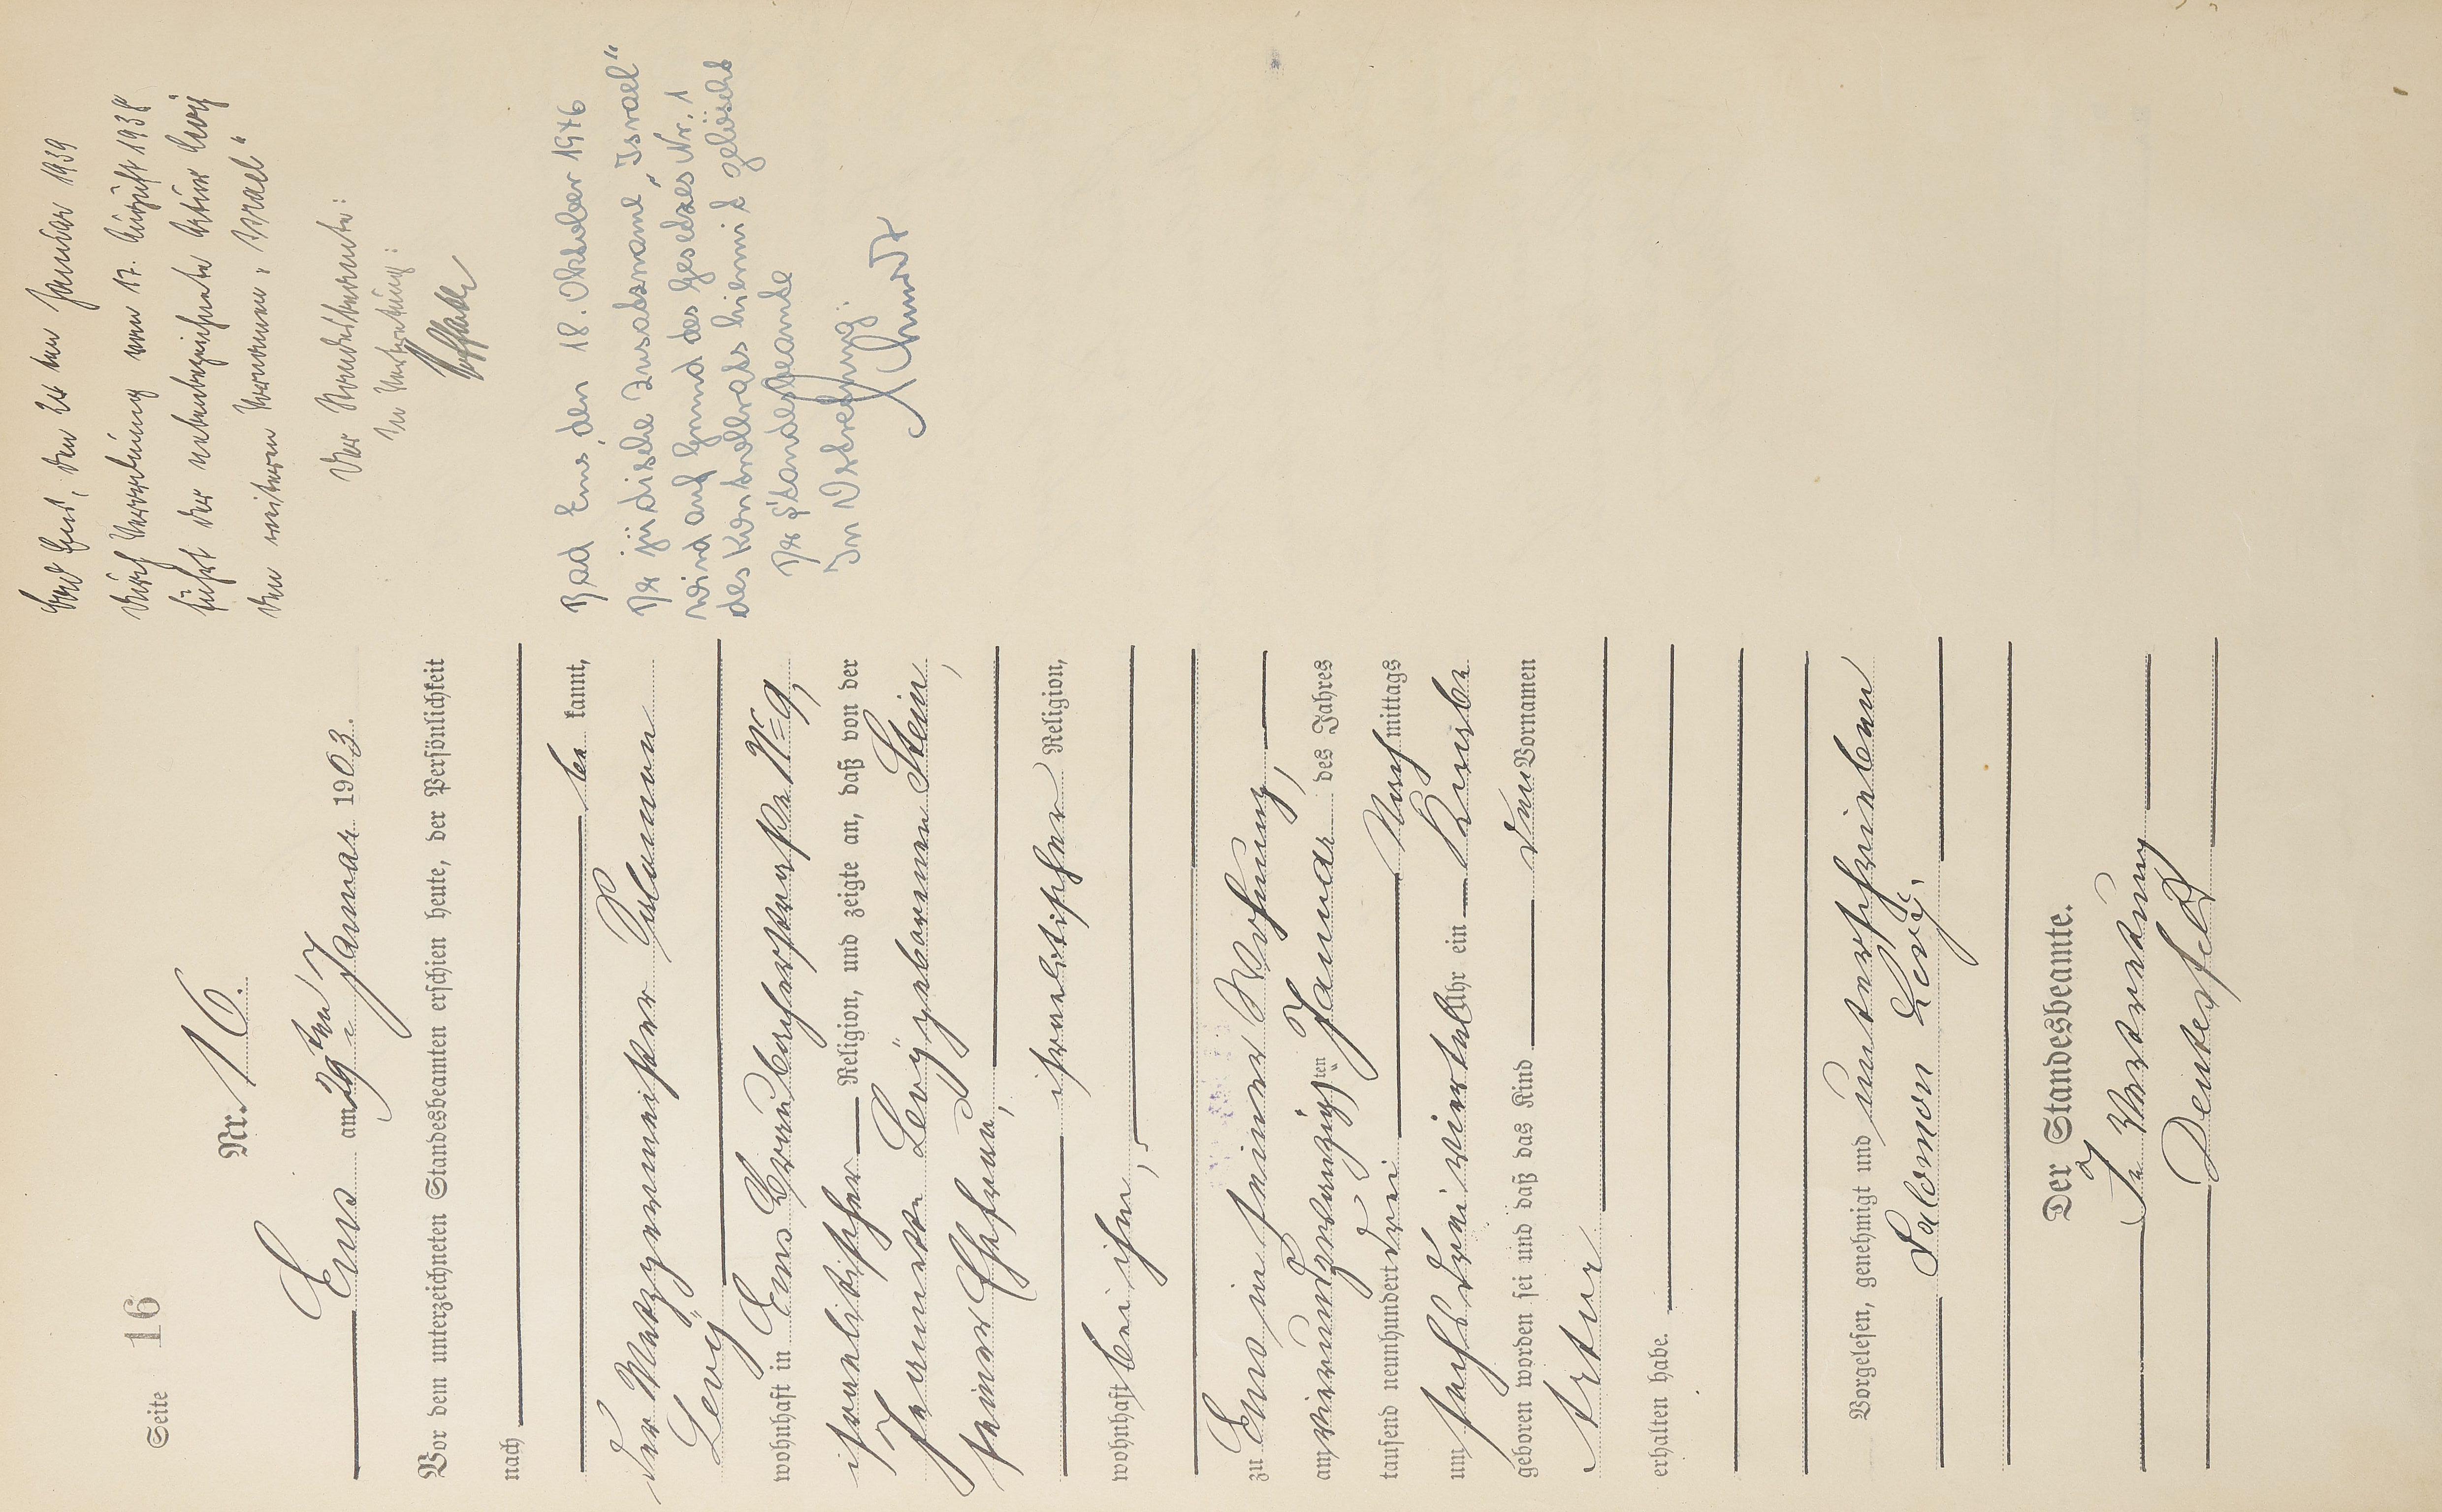 Seite 16
Nr. 16.
Ems am 29ten Januar 1903.
Vor dem unterzeichneten Standesbeamten erschien heute, der Persönlichkeit
nach
be kannt,
der Metzgermeister Salomon
Levÿ
wohnhaft in Ems Graubacherstraße No 9,
israelitischer Religion, und zeigte an, daß von der
Jeanette Levÿ geborenen Stein,
seiner Ehefrau,
israelitischer Religion,
wohnhaft bei ihm,
zu Ems in seiner Wohnung,
am vierundzwanzigsten Januar des Jahres
tausend neunhundert drei Nach mittags
um sechs dreiviertel Uhr ein Knabe
geboren worden sei und daß das Kind den Vornamen
Artur
erhalten habe.
Vorgelesen, genehmigt und unterschrieben
Salomon Levÿ.
Der Standesbeamte.
In Vertretung
Bad Ems, den ten Januar 1939
Durch Verordnung vom 17. August 1938
führt der nebenbezeichnete Artur Levÿ
den weiteren Vornamen „Israel“
Der Standesbeamte:
In Vertretung:
Bad Ems, den 18. Oktober 1946
Der jüdische Zusatzname „Israel“
wird auf Grund des Gesetzes Nr. 1
des Kontrollrats hiermit gelöscht
Der Standesbeamte
In Vertretung: